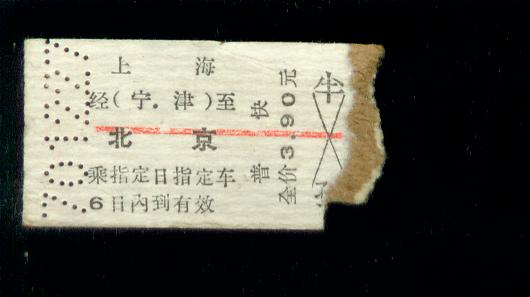 上海
经(宁.津)至
北京
乘指定日指定车
6日内到有效
普快
全价3.90元
半